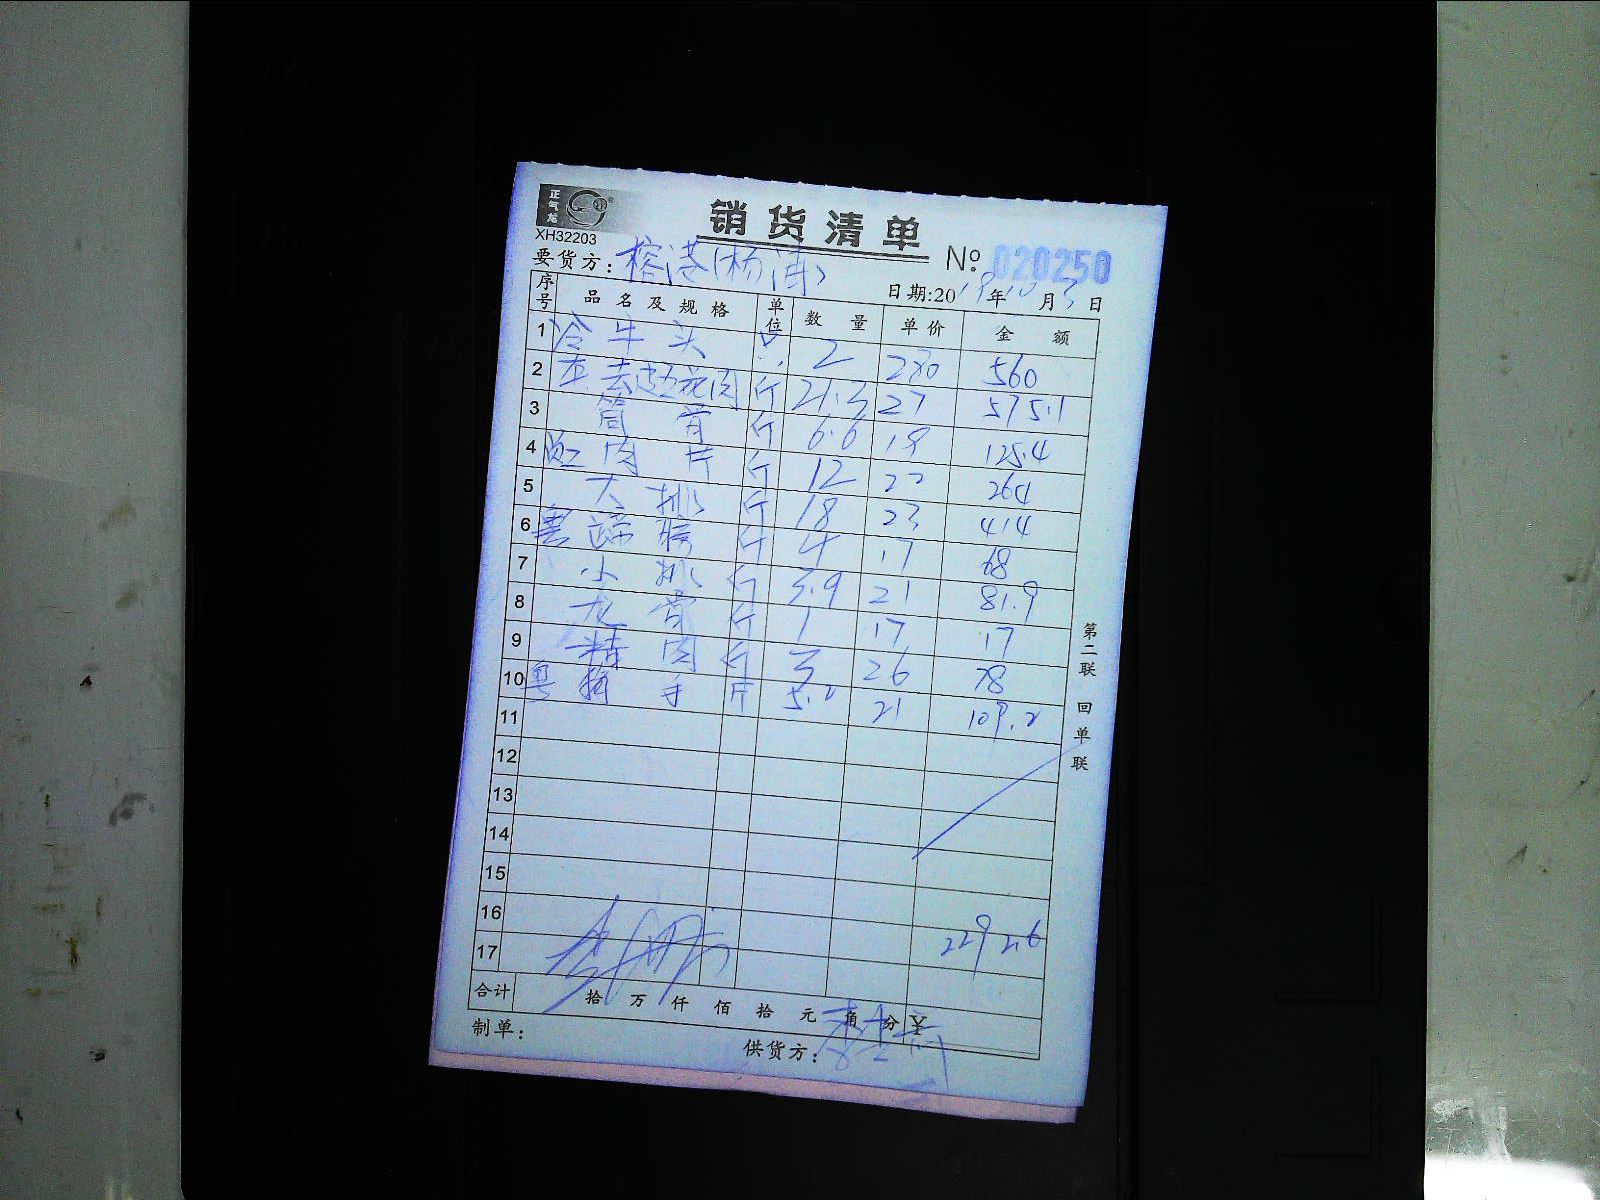 正气龙
XH32203
销货清单
№: 020250
要货方: 榕港(杨浦)
日期:2019年10月3日
序号 品名及规格 单位 数量 单价 金额
1 冷牛头 只 2 280 560
2 去边五花肉 斤 21.3 27 575.1
3 筒骨 斤 6.6 19 125.4
4 肉片 斤 12 22 264
5 大排 斤 18 23 414
6 蹄髈 斤 4 17 68
7 小排 斤 3.9 21 81.9
8 龙骨 斤 1 17 17
9 精肉 斤 3 26 78
10 斤 5.2 21 109.2
11
12
13
14
15
16 2292.6
17
合计 拾 万 仟 佰 拾 元 角 分 ¥
制单:
供货方:
第二联 回单联